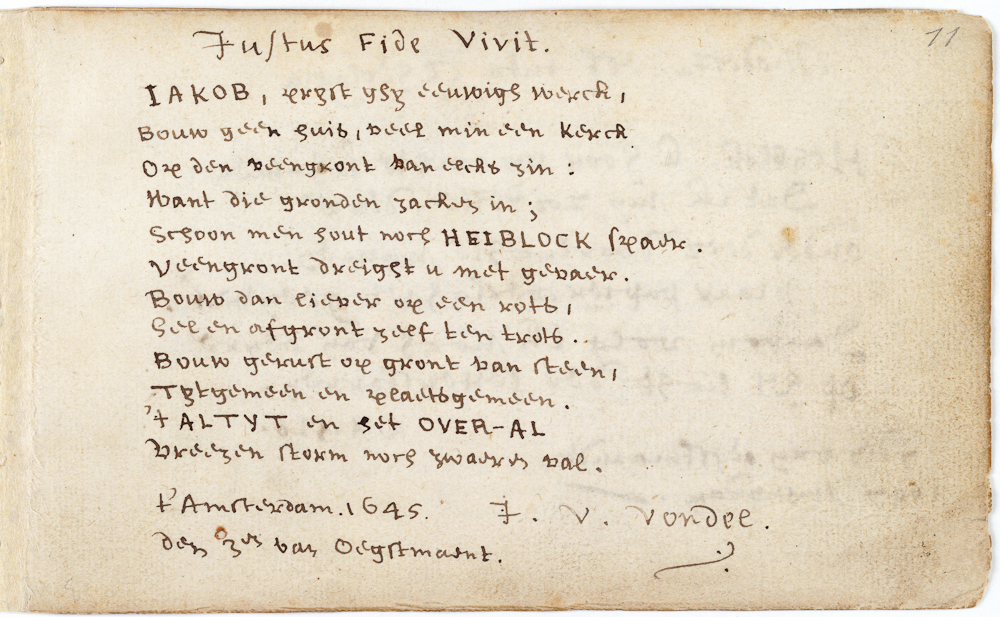 11
Justus Fide Vivit.
IAKOB, pryst ghy eeuwigh werck,
Bouw geen huis, veel min een kerck
Op den veengront van elcks zin:
Want die gronden zacken in;
Schoon men hout noch HEIBLOCK spaer.
Veengront dreight u met gevaer.
Bouw dan liever op een rots,
Hel en afgront zelf ten trots.
Bouw gerust op gront van steen,
Tytgemeen en plaetsgemeen.
't ALTYT en het OVER-AL
Vreezen storm noch zwaeren val.
t'Amsterdam. 1645.
J. v. Vondel.
den 3en van Oegstmaent.